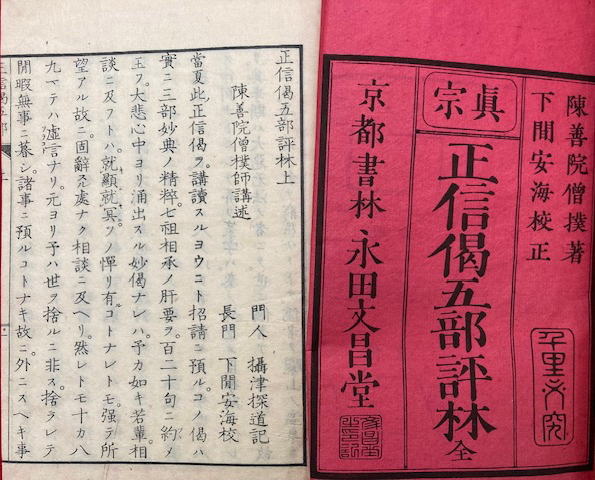 陳善院僧撲著
下間安海校正
眞宗
正信偈五部評林 全
京都書林 永田文昌堂
正信偈五部評林上
陳善院僧撲師講述
門人 攝津探道記
長門 下間安海校
當夏此正信偈ヲ講讀スルヨウニト招請ニ預ルコノ偈ハ
實ニ三部妙典ノ精粹七祖相承ノ肝要ヲ百二十句ニ約メ
玉フ大悲心中ヨリ涌出スル妙偈ナレハ予カ如キ若輩相
談ニ及フトハ就顯就冥ソノ憚リ有コトナレトモ强テ所
望アル故ニ固辭スル處ナク相談ニ及ヘリ然レトモ十カ八
九マテハ虛言ナリ元ヨリ予ハ世ヲ捨ルニ非ス捨ラレテ
閒暇無事ニ暮シ諸事ニ預ルコトナキ故ニ外ニスヘキ事